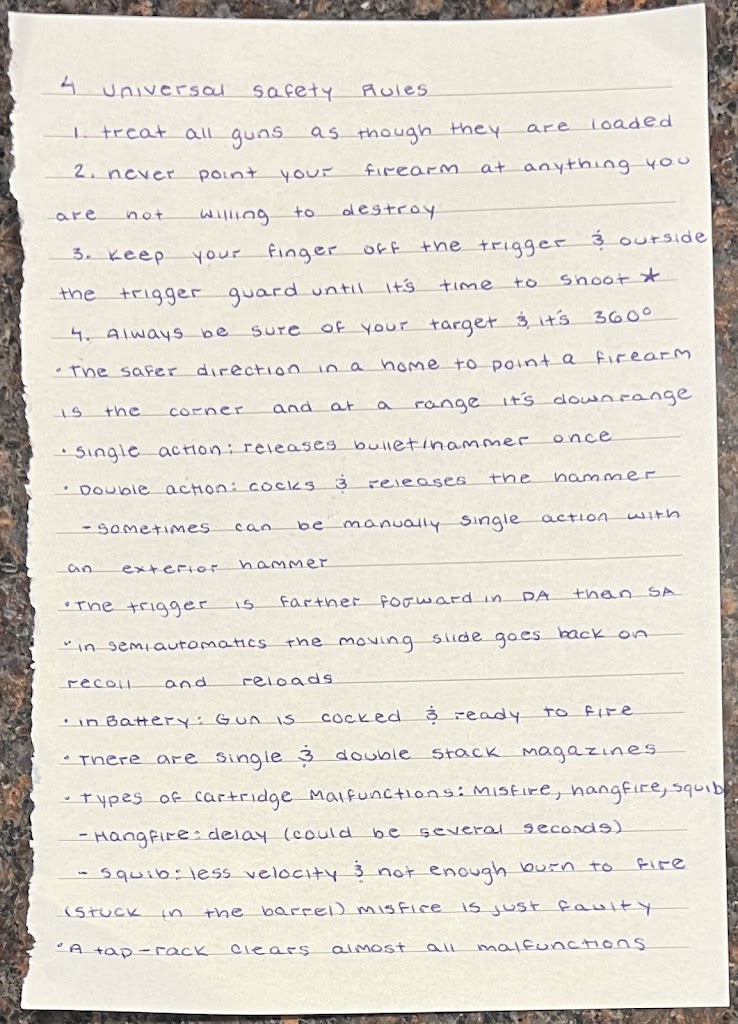 4 universal safety Rules
1. treat all guns as though they are loaded
2. never point your firearm at anything you
are not willing to destroy
3. Keep your finger off the trigger & outside
the trigger guard until it's time to shoot *
4. Always be sure of your target & it's 360°
• The safer direction in a home to point a firearm
is the corner and at a range it's downrange
• single action: releases bullet/hammer once
• Double action: cocks & releases the hammer
- sometimes can be manually single action with
an exterior hammer
• The trigger is farther forward in DA than SA
• in semiautomatics the moving slide goes back on
recoil and reloads
• in Battery: Gun is cocked & ready to fire
• There are single & double stack magazines
• Types of cartridge Malfunctions: Misfire, hangfire, squib
- Hangfire: delay (could be several seconds)
- Squib: less velocity & not enough burn to fire
(stuck in the barrel) misfire is just faulty
• A tap-rack clears almost all malfunctions